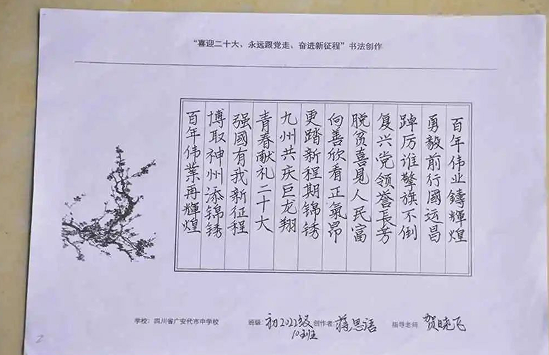 “喜迎二十大、永远跟党走、奋进新征程”书法创作
百年伟业鑄輝煌
勇毅前行國运昌
踔厉谁擎旗不倒
复兴党领誉長芳
脱贫喜見人民富
向善欣看正氣昂
更踏新程期锦绣
九州共庆巨龙翔
青春献礼二十大
强國有我新征程
博取神州添锦绣
百年伟業再輝煌
学校：四川省广安代市中学校 班级：初2022级10班 创作者：蒋思语 指导老师 贺晓飞